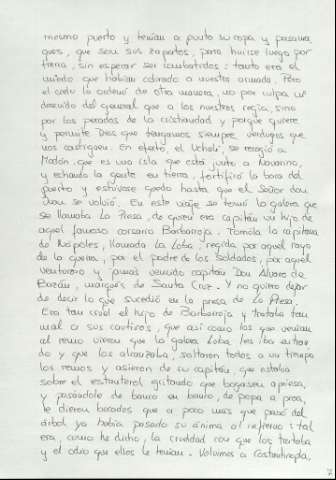 mesmo puerto y tenían a punto su ropa y pasama-
ques, que son sus zapatos, para huirse luego por
tierra, sin esperar ser combatidos: tanto era el
miedo que habían cobrado a nuestra armada. Pero
el cielo lo ordenó de otra manera, no por culpa ni
descuido del general que a los nuestros regía, sino
por los pecados de la cristiandad y porque quiere
y permite Dios que tengamos siempre verdugos que
nos castiguen. En efecto, el Uchalí se recogió a
Modón, que es una isla que está junto a Navarino,
y echando la gente en tierra, fortificó la boca del
puerto y estúvose quedo hasta que el Señor don
Juan se volvió. En este viaje se tomó la galera que
se llamaba La Presa, de quien era capitán un hijo de
aquel famoso corsario Barbarroja. Tomóla la capitana
de Nápoles, llamada La Loba, regida por aquel rayo
de la guerra, por el padre de los soldados, por aquel
venturoso y jamás vencido capitán Don Álvaro de
Bazán, marqués de Santa Cruz. Y no quiero dejar
de decir lo que sucedió en la presa de La Presa.
Era tan cruel el hijo de Barbarroja y trataba tan
mal a sus cautivos, que así como los que venían
al remo vieron que la galera Loba les iba entran-
do y que los alcanzaba, soltaron todos a un tiempo
los remos y asieron de su capitán, que estaba
sobre el estanterol gritando que bogasen apriesa,
y pasándole de banco en banco, de popa a proa,
le dieron bocados que a poco más que pasó del
árbol ya había pasado su ánima al infierno: tal
era, como he dicho, la crueldad con que los trataba
y el odio que ellos le tenían. Volvimos a Constantinopla,